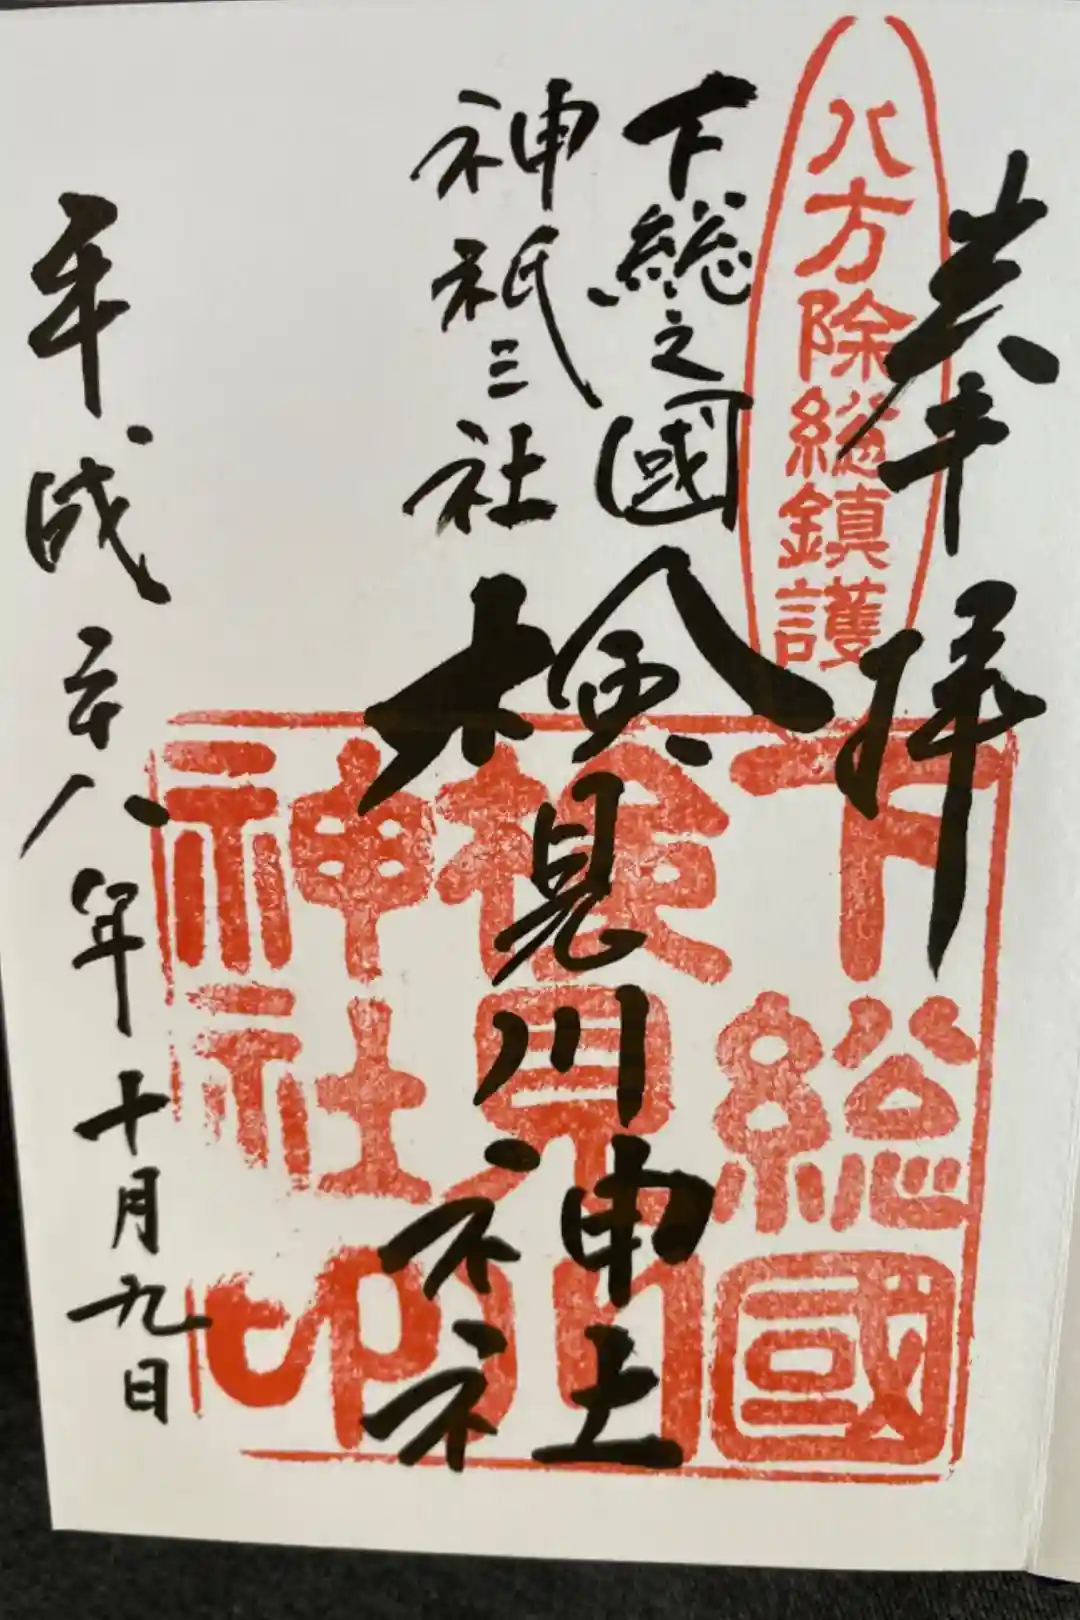 奉拝
八方除総鎮護
下総之國
神祇三社
検見川神社
下総國
検見川
神社印
平成二八年十月九日